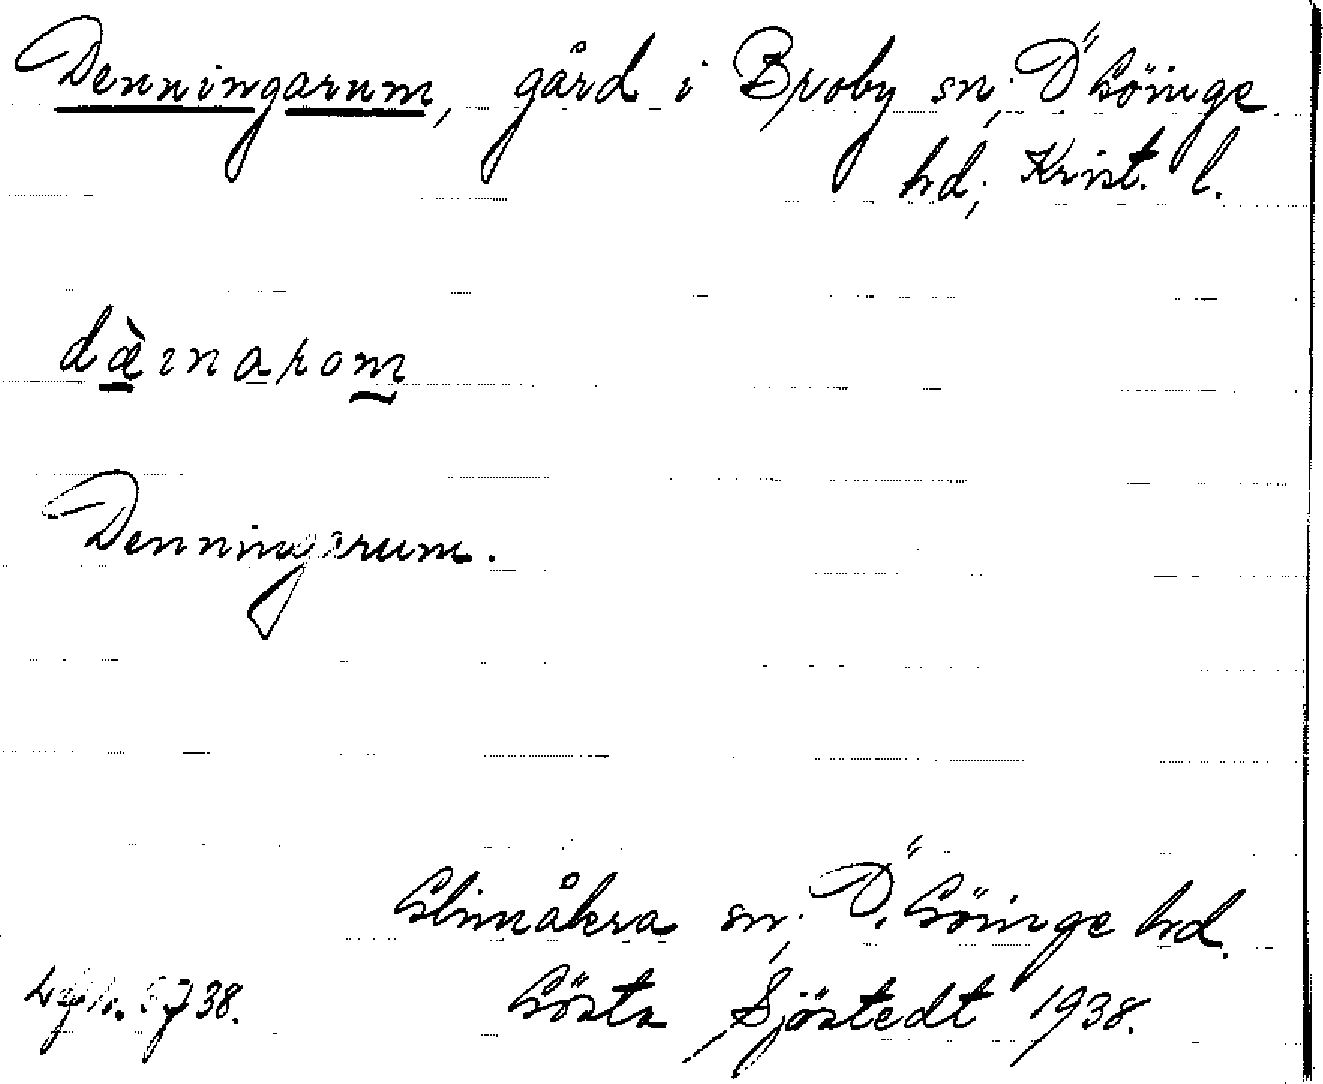 Denningarum, gård i Broby sn, Ö Göinge
hd, Krist. l.
dæ̀ɪnarom
Denningarum.
Glimåkra sn, Ö. Göinge hd.
Gösta Sjöstedt 1938.